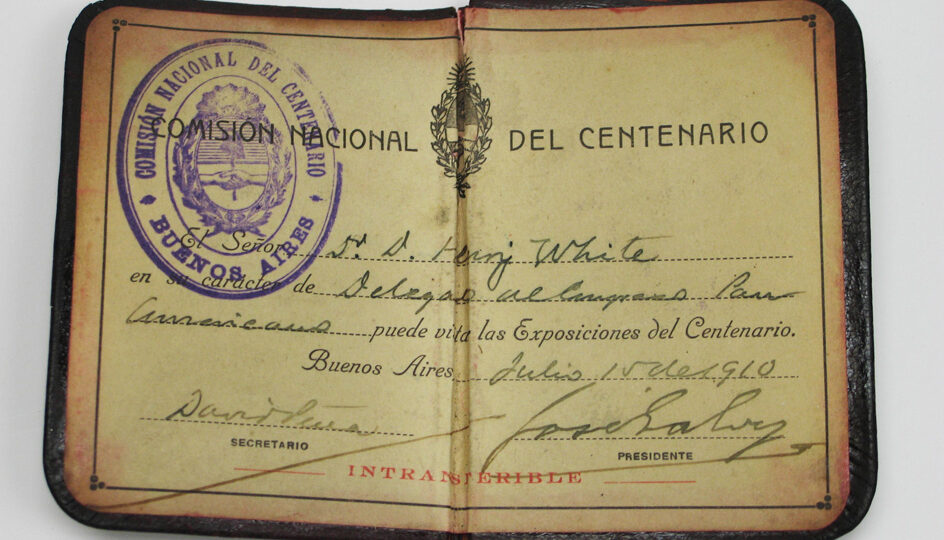 COMISIÓN NACIONAL DEL CENTENARIO
BUENOS AIRES
COMISIÓN NACIONAL DEL CENTENARIO
El Señor Dr. D. Henry White
en su carácter de Delegado al Congreso Pan
Americano puede visita las Exposiciones del Centenario.
Buenos Aires, Julio 15 de 1910
David Peña
SECRETARIO
PRESIDENTE
INTRANSFERIBLE